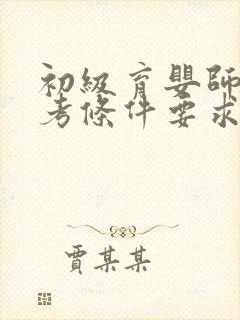 初級育嬰師
考條件要求
賈某某